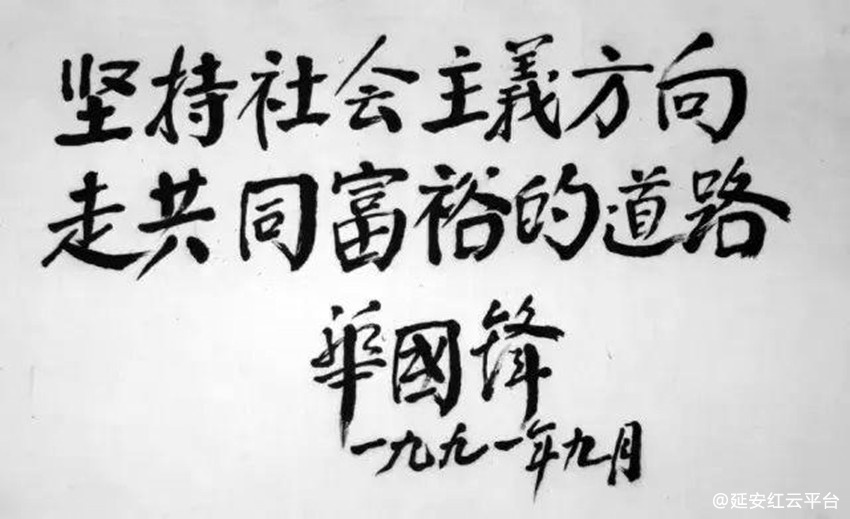 坚持社会主義方向
走共同富裕的道路
華國鋒
一九九一年九月
@延安红云平台